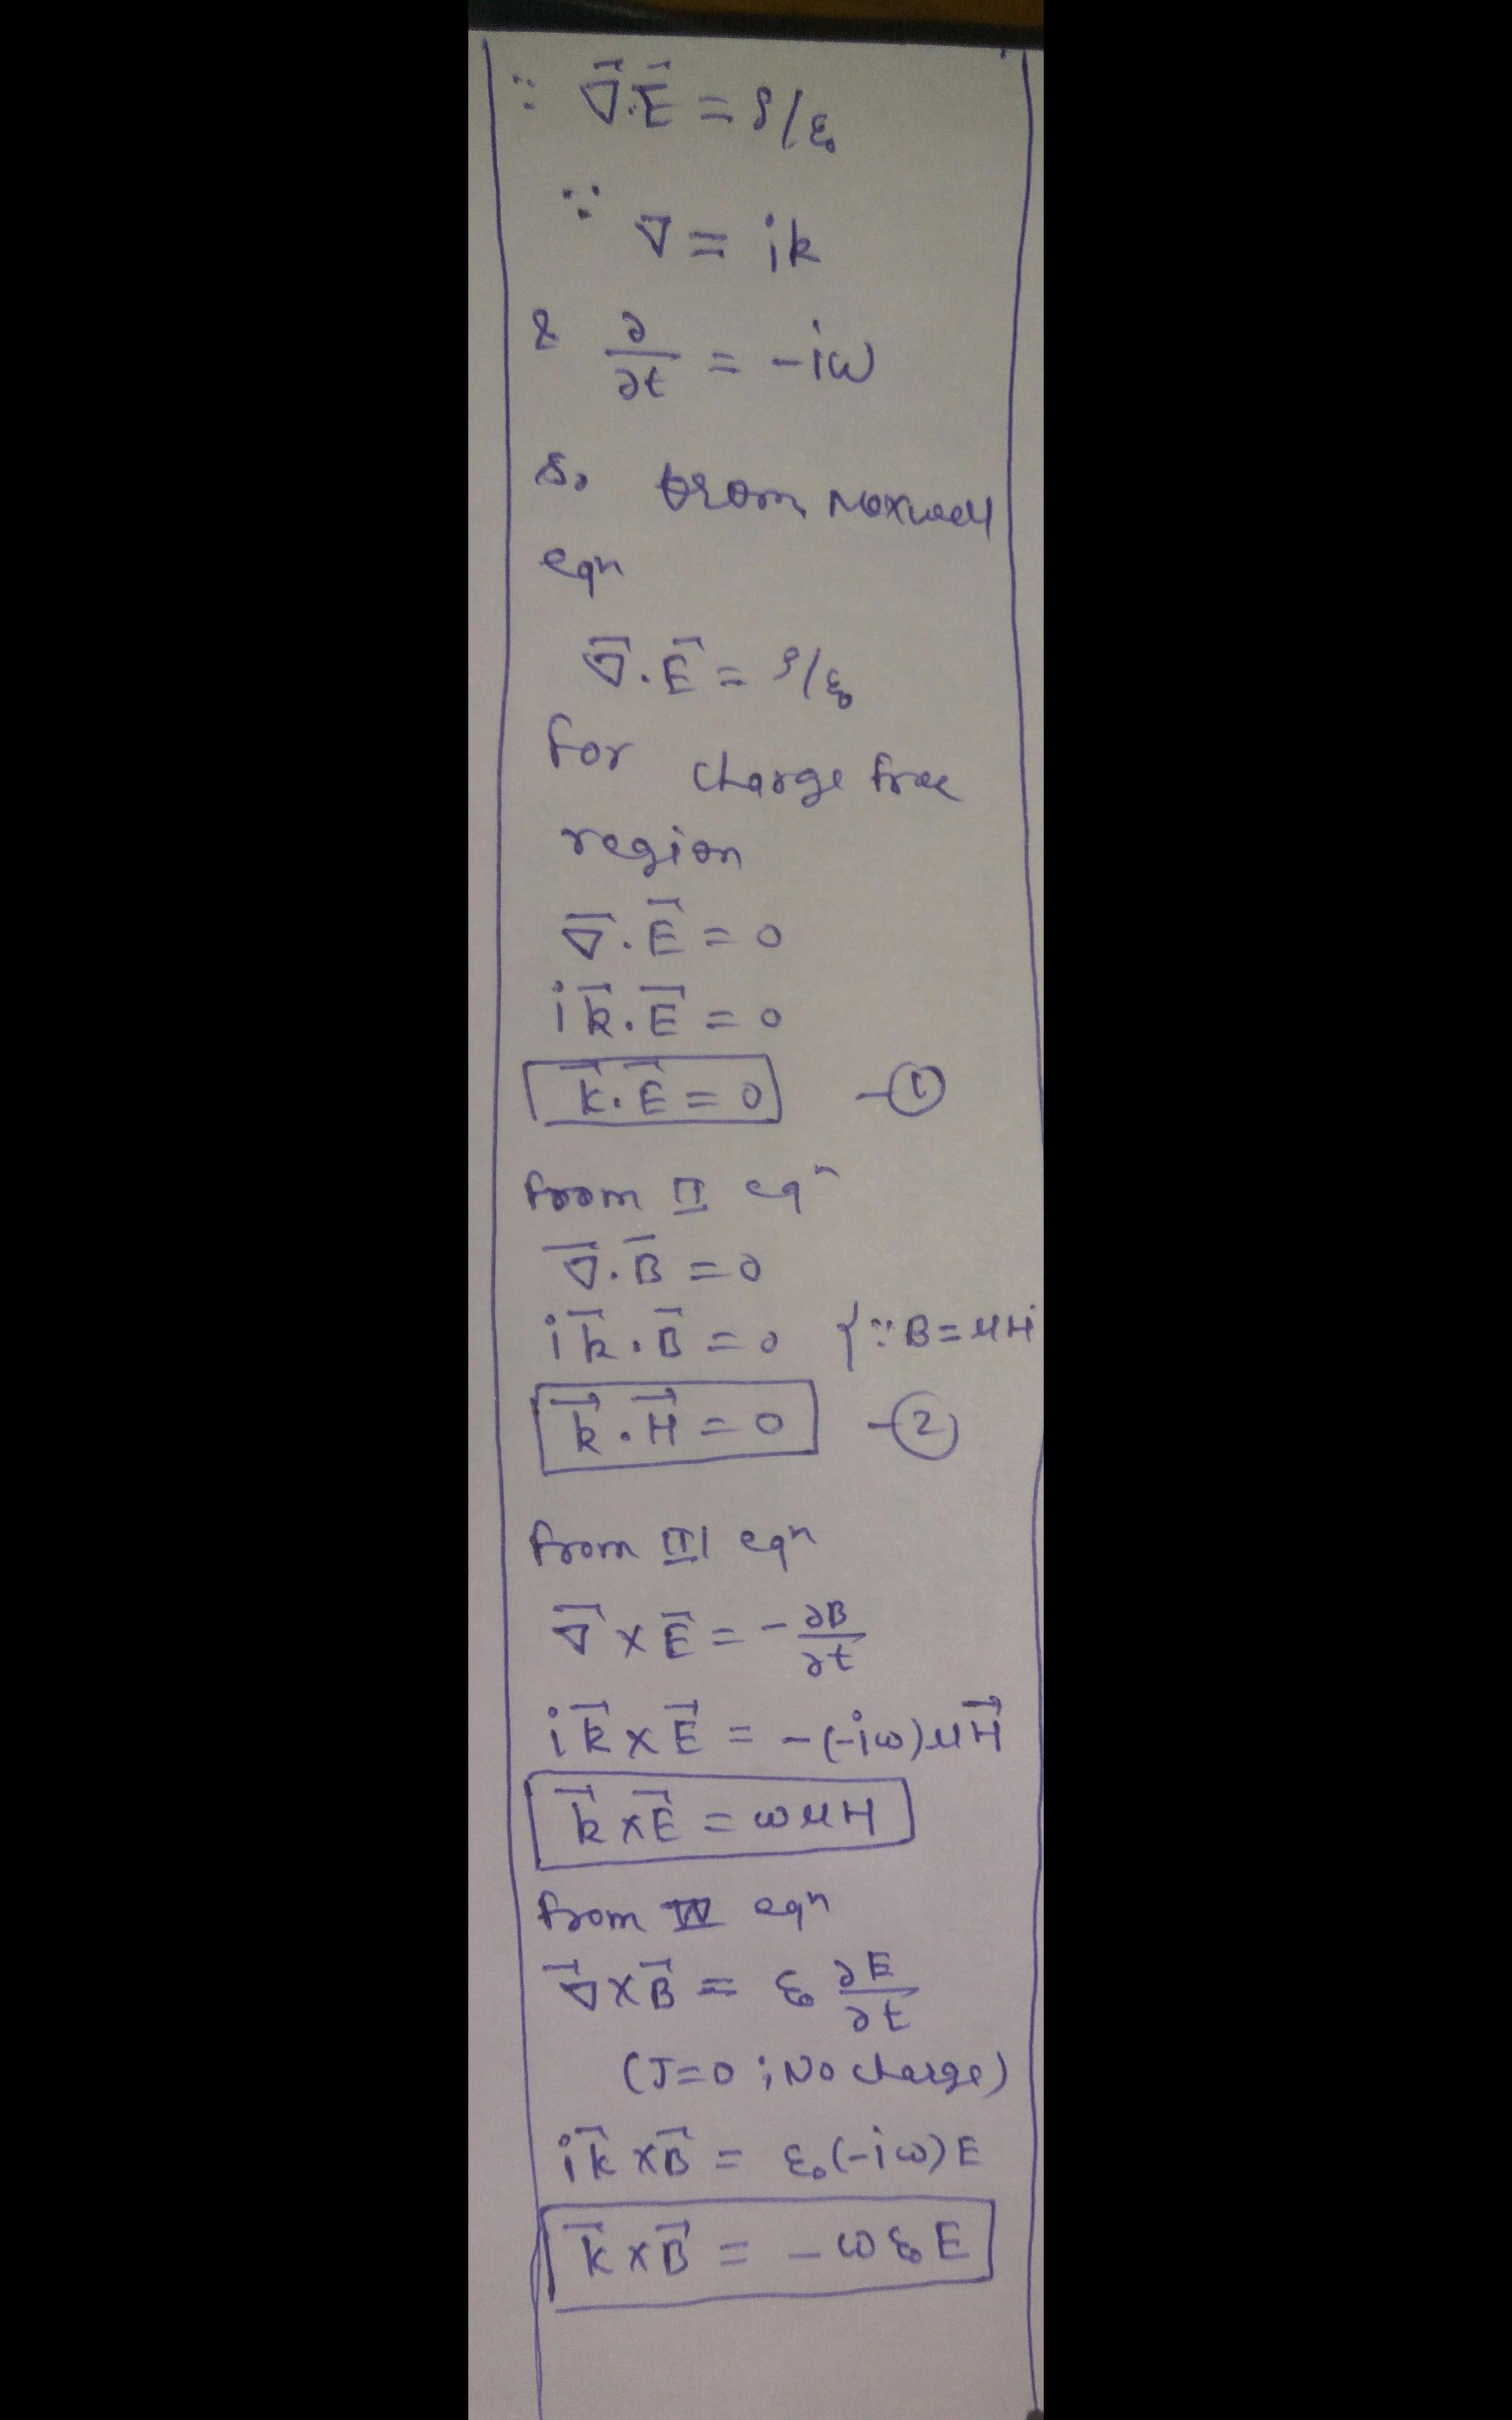 ∵ ∇⃗.E⃗ = ρ/ε₀
∵ ∇ = ik
& ∂/∂t = -iω
So from Maxwell
eqn
∇⃗.E⃗ = ρ/ε₀
for charge free
region
∇⃗.E⃗ = 0
ik⃗.E⃗ = 0
k⃗.E⃗ = 0 -①
from II eqⁿ
∇⃗.B⃗ = 0
ik⃗.B⃗ = 0 {∵ B = μH
k⃗.H⃗ = 0 -②
from III eqⁿ
∇⃗ × E⃗ = -∂B/∂t
ik⃗ × E⃗ = -(-iω)μH⃗
k⃗ × E⃗ = ωμH
from IV eqⁿ
∇⃗ × B⃗ = ε₀ ∂E/∂t
(J=0; No charge)
ik⃗ × B⃗ = ε₀(-iω)E
k⃗ × B⃗ = -ωε₀E